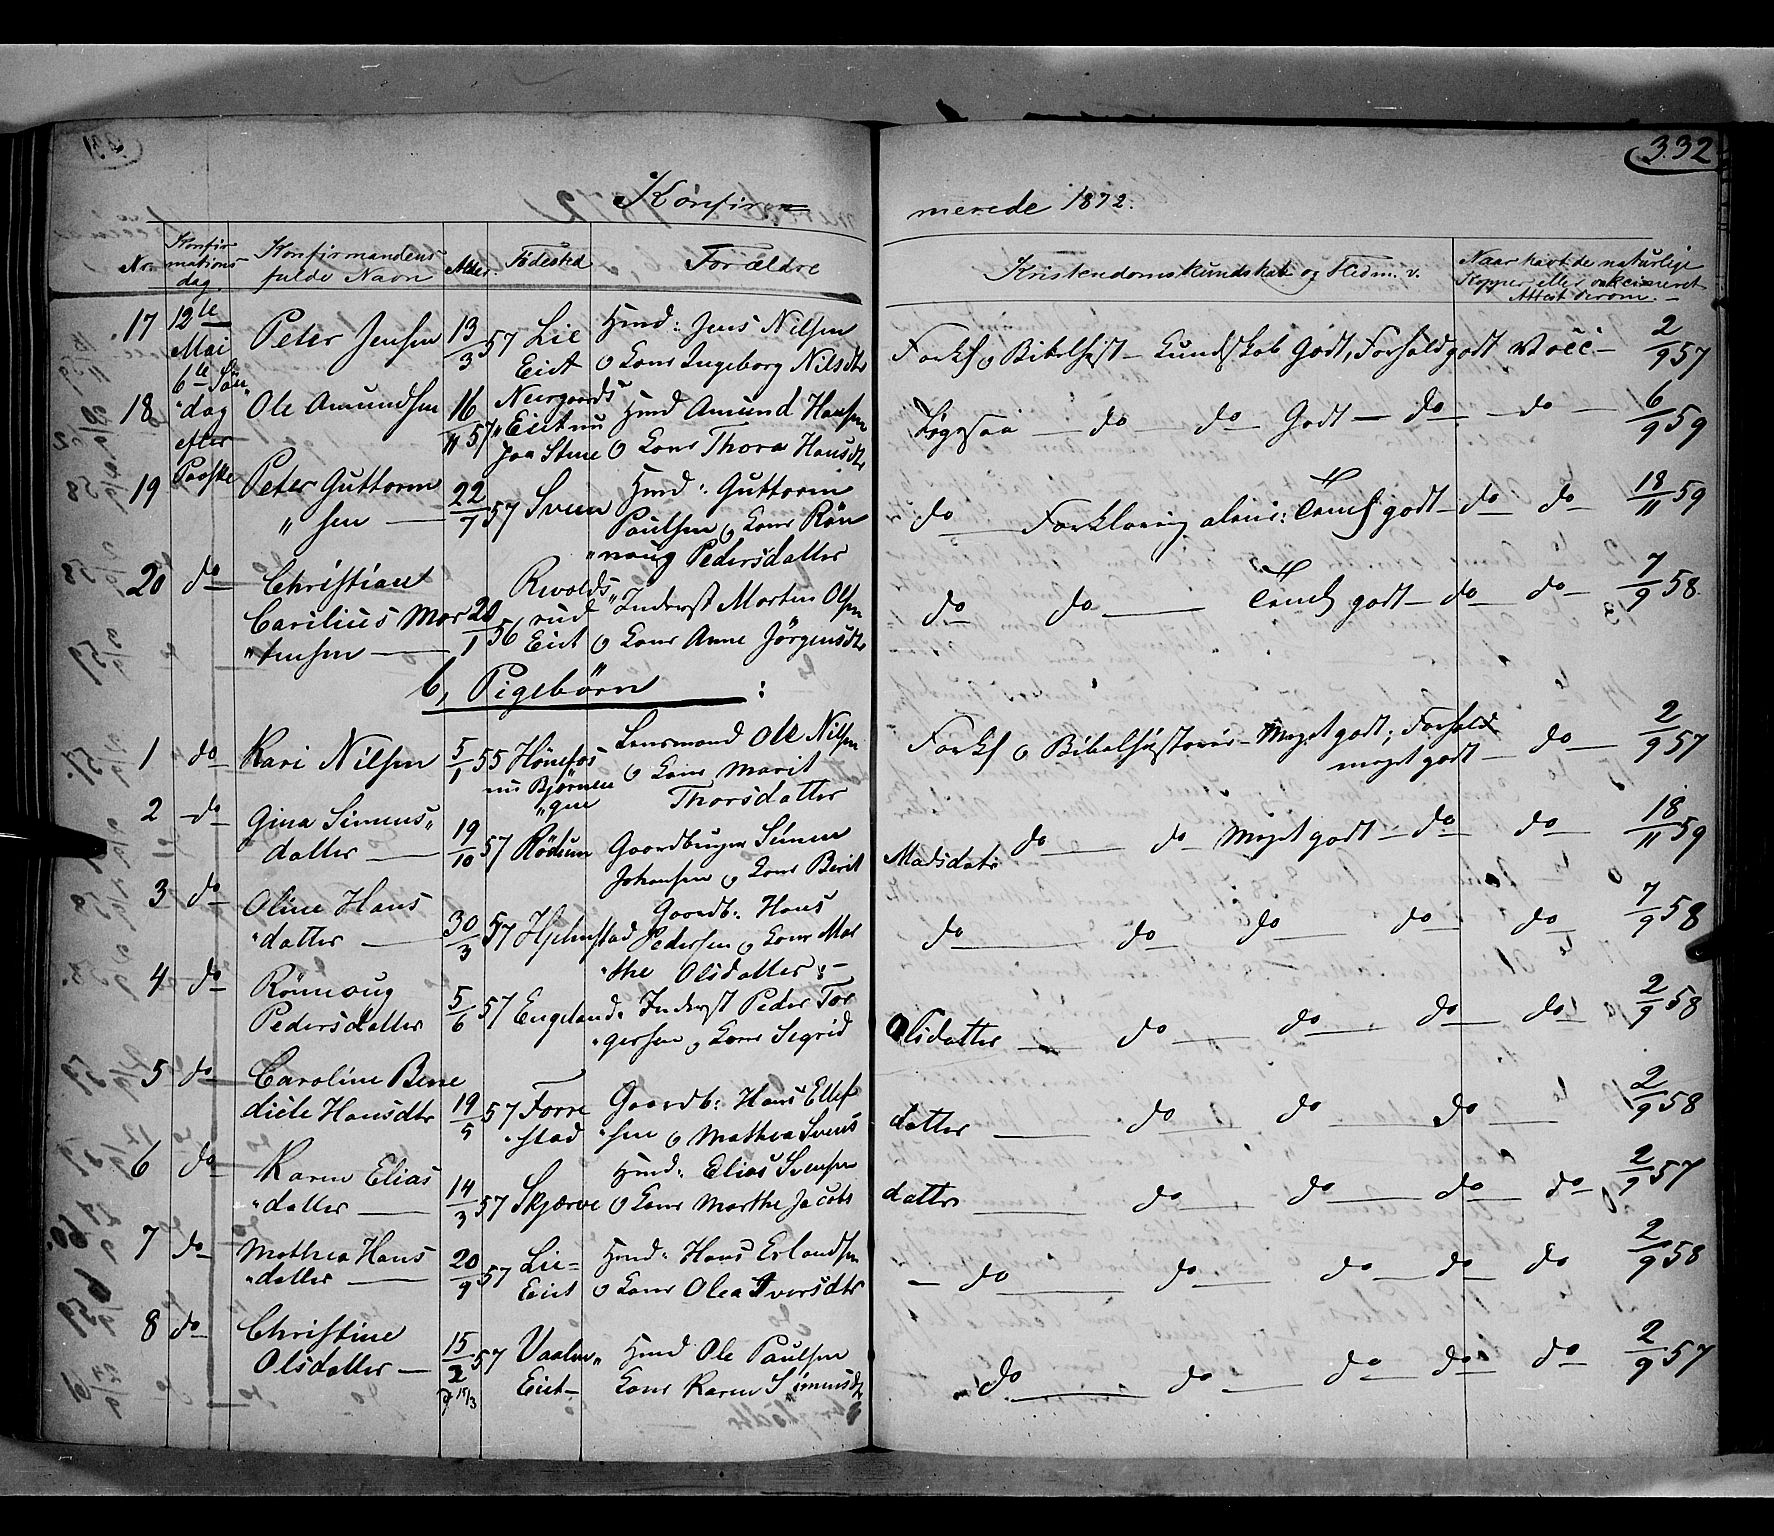 332
Konfir= merede 1872.
No Konfirmations dag. Konfirmandens fulde Navn Alder. Födested Forældre Kristendomskundskab og Fledm. v. Naar havt de naturlige Kopper eller vakcineret Attest derom.
17 12te Mai 6te Søn" "dag efter Paaske Peter Jensen 13/3 57 Lie Eiet Hmd: Jens Nilsen o Kone Ingeborg Nilsdtr Forkl o Bibelhist— Kundskab Godt, Forhold godt Vacc— 2/9 57
18 Ole Amundsen 16/11 57 Neergaards "Eiet nu Hmd Amund Hansen o Kone Thora Hansdtr Ligesaa — do — do Godt — do — do — 6/9 59
19 Peter Guttorm "sen — 22/7 57 Sveen Hmd: Guttorm Paulsen o Kone Rön "naug Pedersdatter do — Forklaring alene: Temf godt — do — do — 18/11 59
20 do Christian Carilius Mor "tensen — 20/1 56 Rvolds" rud Eiet Inderst Morten Olsen o Kone Anne Jörgensdtr do do — Temf godt — do — do — 7/9 58.
b, Pigebörn :
1 do Kari Nilsen 5/1 55 Hönefos nu Björnen "gen Lensmand Ole Nilsen o Kone Marit Thorsdatter Forkf o Bibelhistorie — Meget godt; Forhold meget godt — do — 2/9 57
2 do Gina Simens" datter — 19/10 57 Rödsun Gaardbruger Simen Johansen o Kone Berit Madsdatr do — do Meget godt — do do — 18/11 59
3 do Oline Hans "datter — 30/3 57 Hjelmstad Gaardb: Hans Pedersen o Kone Mar "the Olsdatter:— do — do — do — do — do — 7/9 58
4 do Rönnoug Pedersdatter 5/6 57 Engeland: Inderst Peder Tor "gersen o Kone Sigrid Olsdatter — do — do — do — do — 2/9 58
5 do Caroline Bene dicte Hansdtr 19/5 57 Forre "stad Gaardb: Hans Ellef "sen o Mathea Svens datter — do — do — do — 2/9 58
6 do Karen Elias "datter — 14/3 57 Skjærve Hmd: Elias Svensen o Kone Marthe Jacobs datter — do — do — do — do — 2/9 57
7 do Mathea Hans "datter — 20/9 57 Lie= Eiet Hmd: Hans Erlandsen o Kone Olea Iversdtr — do — do — do — do — do 2/9 58
8 do Christine Olsdatter — 15/2 57 Vaalen" Eiet— Hmd Ole Paulsen Kone Karen Simensdtr do — do — do — do — do — 2/9 57